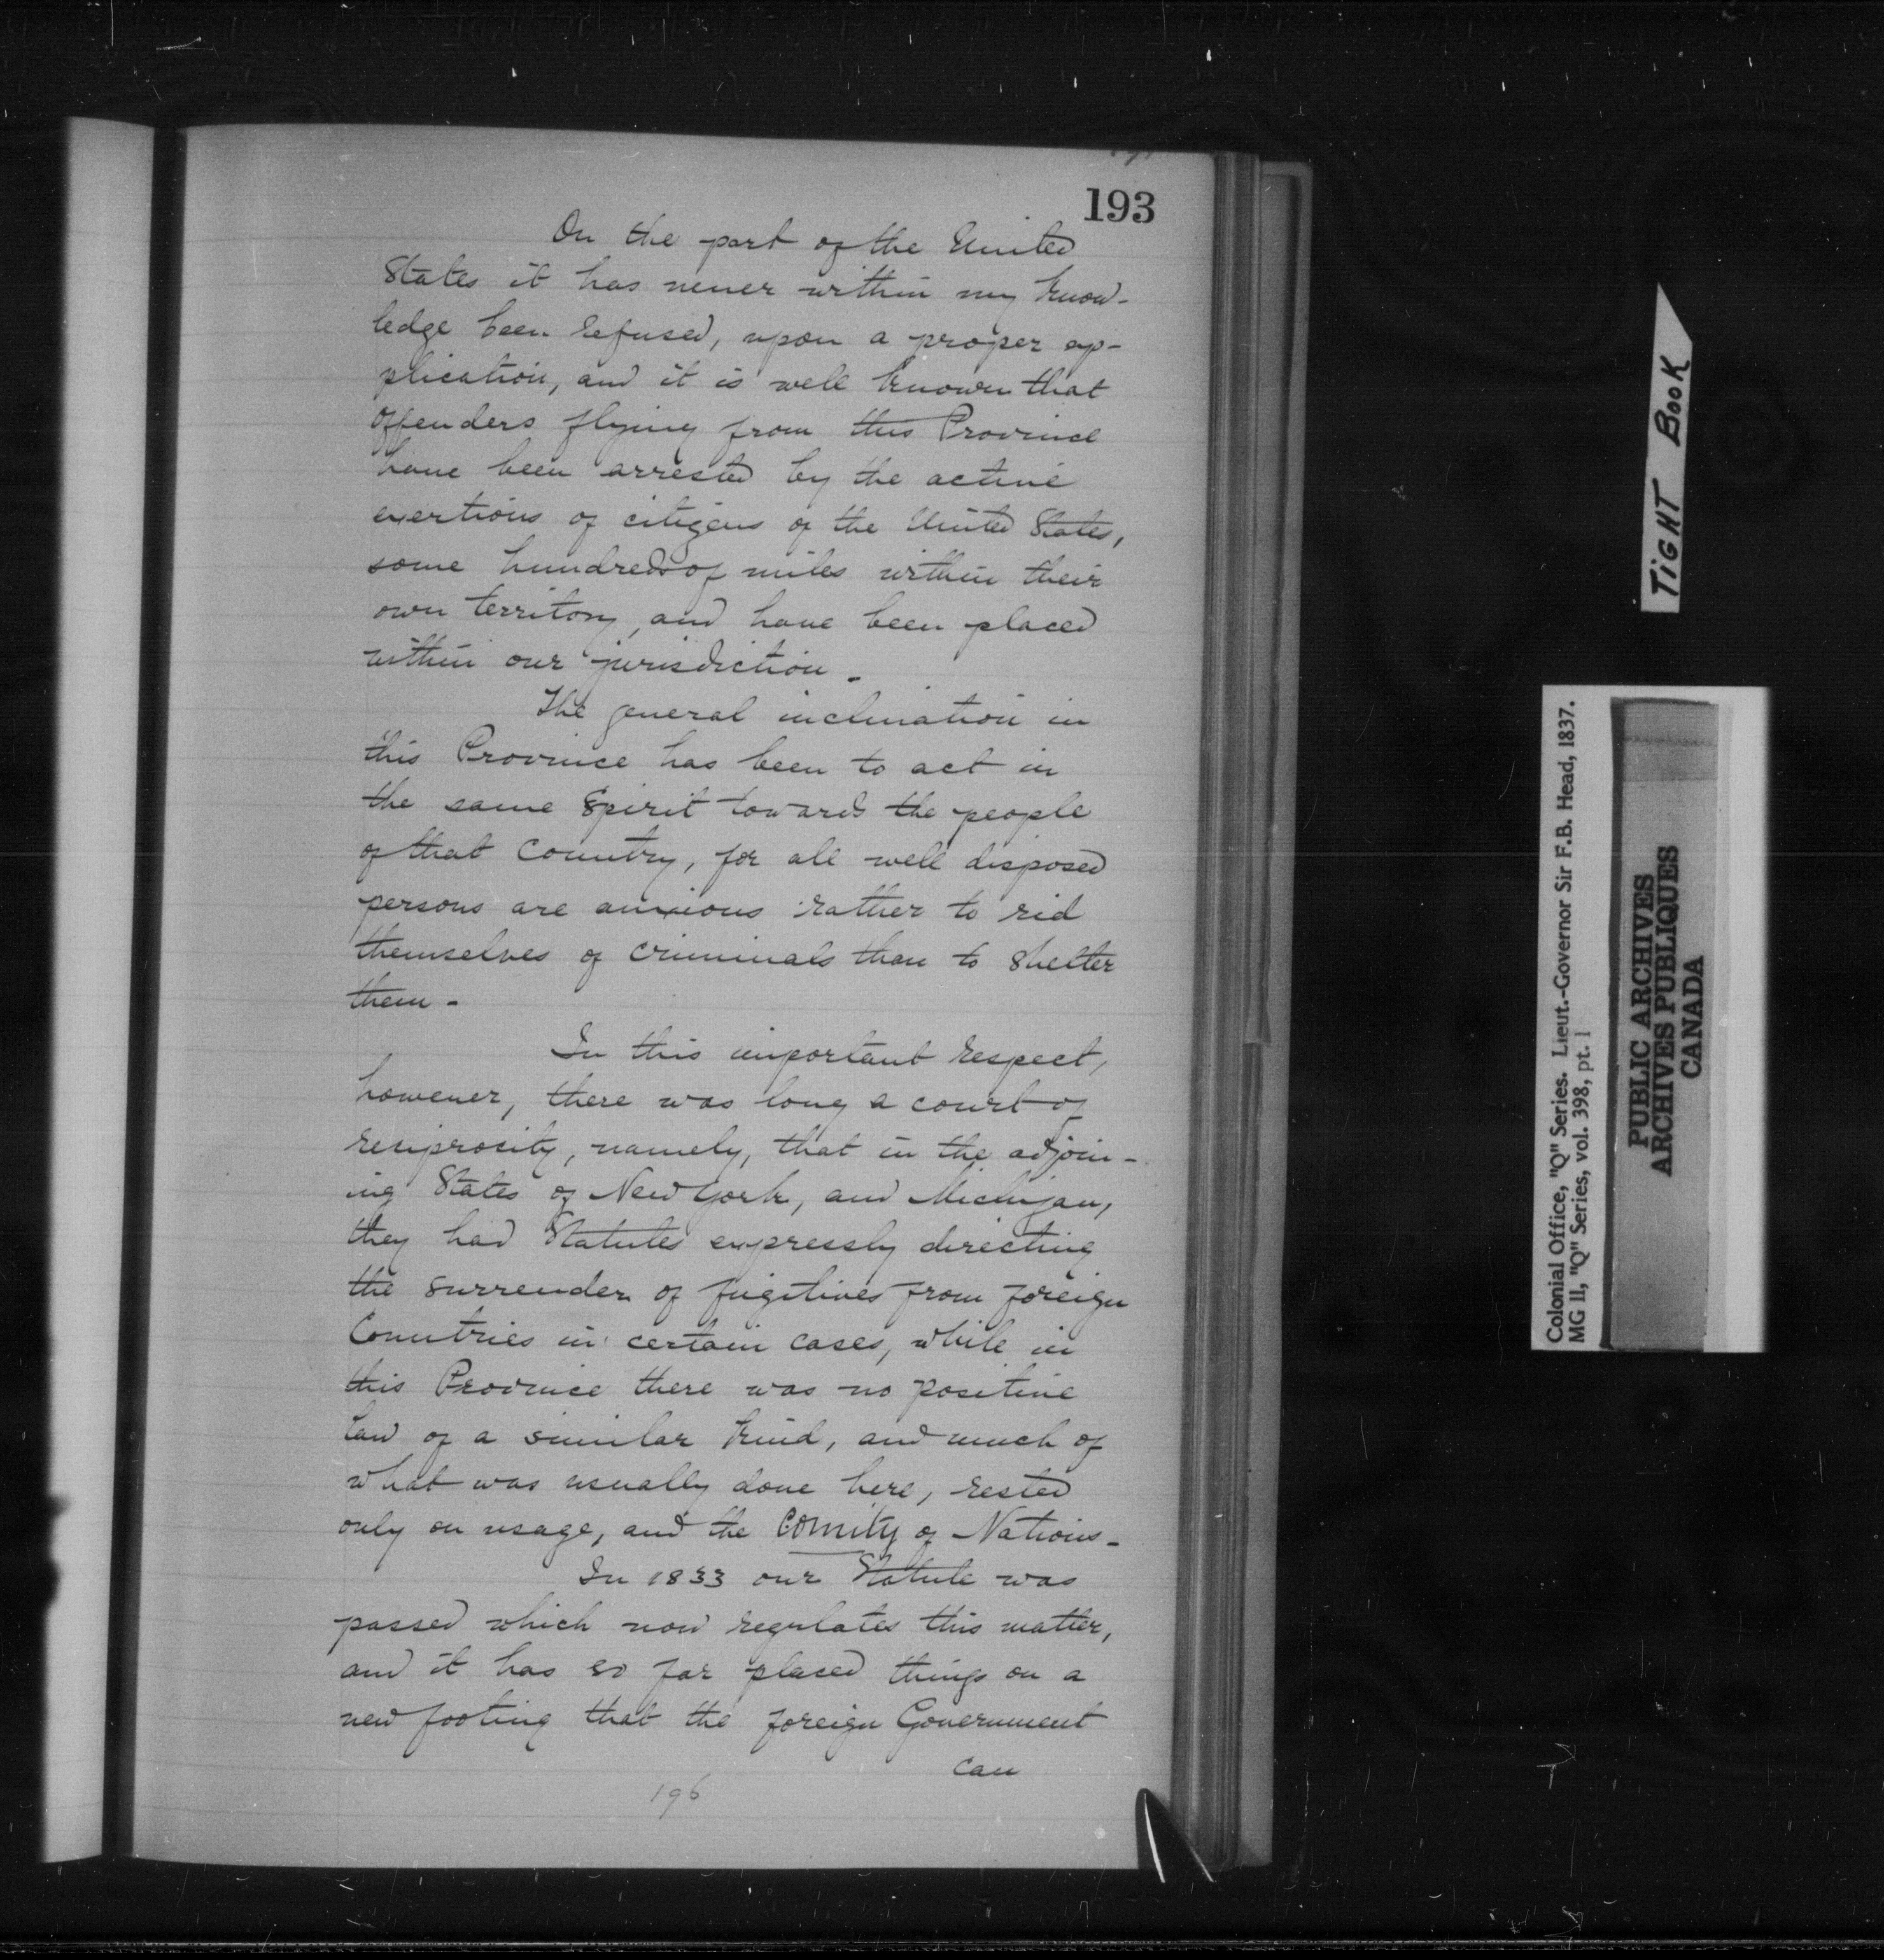 193
On the part of the United
States it has never within my know-
ledge been refused, upon a proper ap-
plication, and it is well known that
offenders flying from this Province
have been arrested by the active
exertions of citizens of the United States,
some hundreds of miles within their
own territory, and have been placed
within our jurisdiction -
The general inclination in
this Province has been to act in
the same Spirit towards the people
of that Country, for all well disposed
persons are anxious rather to rid
themselves of criminals than to shelter
them -
In this important respect,
however, there was long a court of
reciprosity, namely, that in the adjoin-
ing States of New York, and Michigan,
they had Statutes expressly directing
the surrender of fugitives from foreign
Countries in certain cases, while in
this Province there was no positive
Law of a similar kind, and much of
what was usually done here, rested
only on usage, and the Comity of Nations -
In 1833 our Statute was
passed which now regulates this matter,
and it has so far placed things on a
new footing that the foreign Government
can
196
TIGHT BOOK
Colonial Office, "Q" Series. Lieut.-Governor Sir F.B. Head, 1837.
MG 11, "Q" Series, vol. 398, pt. 1
PUBLIC ARCHIVES
ARCHIVES PUBLIQUES
CANADA